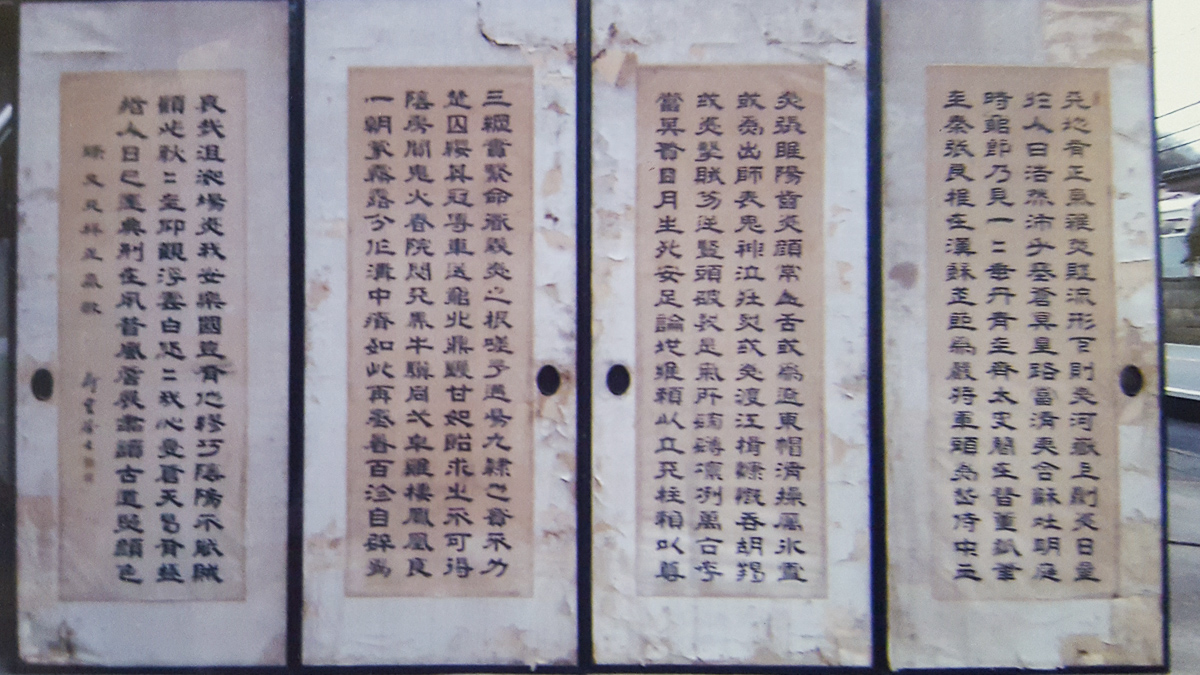 天地有正氣雜然賦流形下則為河嶽上則為日星
於人曰浩然沛乎塞蒼冥皇路當清夷含和吐明庭
時窮節乃見一〻垂丹青在齊太史簡在晉董狐筆
在秦張良椎在漢蘇武節為嚴將軍頭為嵇侍中血
為張睢陽齒為顏常山舌或為遼東帽清操厲冰雪
或為出師表鬼神泣壯烈或為渡江楫慷慨吞胡羯
或為擊賊笏逆豎頭破裂是氣所磅礴凜冽萬古存
當其貫日月生死安足論地維賴以立天柱賴以尊
三綱實繫命道義為之根嗟予遘陽九隸也實不力
楚囚纓其冠傳車送窮北鼎鑊甘如飴求之不可得
陰房闃鬼火春院閟天黑牛驥同一皁雞棲鳳凰食
一朝蒙霧露分作溝中瘠如此再寒暑百沴自辟易
哀哉沮洳場為我安樂國豈有他繆巧陰陽不能賊
顧此耿〻在仰觀浮雲白悠〻我心憂蒼天曷有極
哲人日已遠典刑在夙昔風簷展書讀古道照顏色
錄文天祥正氣歌